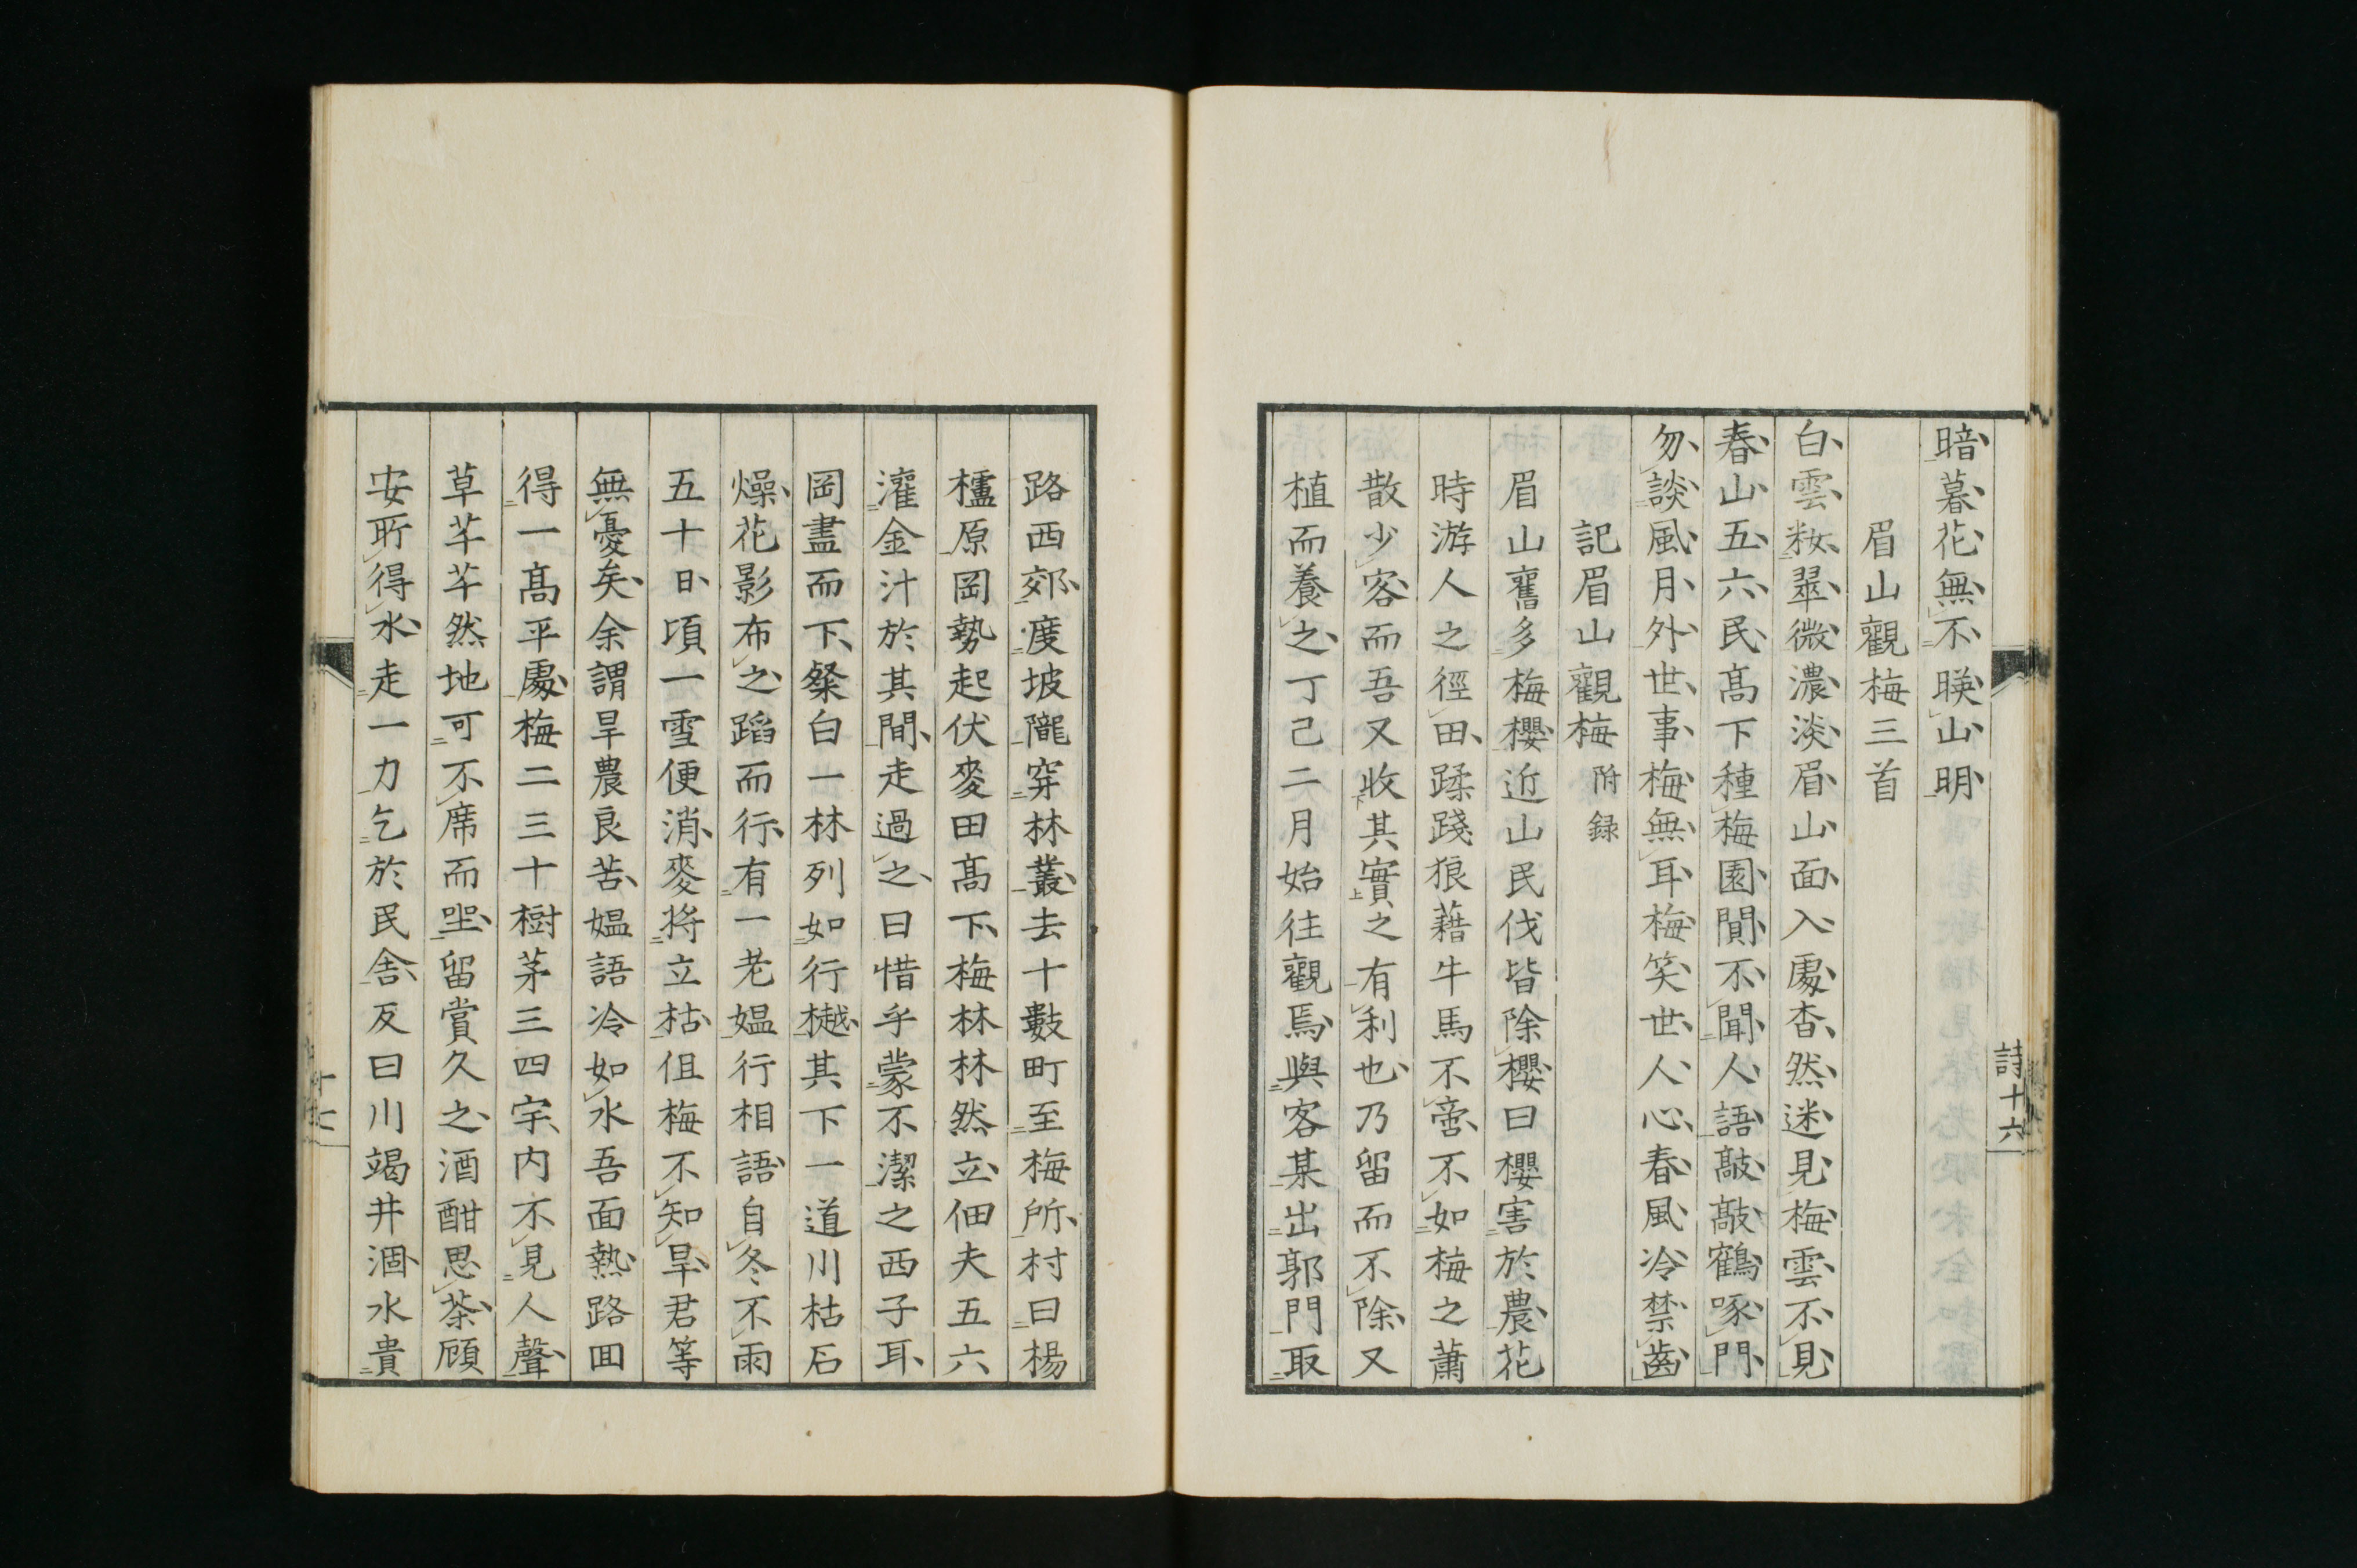 暗暮花無不暎山明
眉山觀梅三首
白雲粧翠微濃淡眉山面入處杳然迷見梅雲不見
春山五六民髙下種梅園閒不聞人語敲敲鶴啄門
勿談風月外世事梅無耳梅笑世人心春風冷禁齒
記眉山觀梅附録
眉山舊多梅櫻近山民伐皆除櫻曰櫻害於農花
時游人之徑田蹂踐狼藉牛馬不啻不如梅之蕭
散少客而吾又收其實之有利也乃留而不除又
植而養之丁己二月始往觀焉與客某出郭門取
詩十六
路西郊度坡隴穿林叢去十數町至梅所村曰楊
櫨原岡勢起伏麥田髙下梅林林然立佃夫五六
灌金汁於其間走過之曰惜乎蒙不潔之西子耳
岡盡而下粲白一林列如行樾其下一道川枯石
燥花影布之蹈而行有一老媼行相語自冬不雨
五十日頃一雪便消麥将立枯但梅不知旱君等
無憂矣余謂旱農良苦媼語冷如水吾面熱路回
得一髙平處梅二三十樹茅三四宇內不見人聲
草芊芊然地可不席而坐留賞久之酒酣思茶顧
安所得水走一力乞於民舎反曰川竭井涸水貴
十七